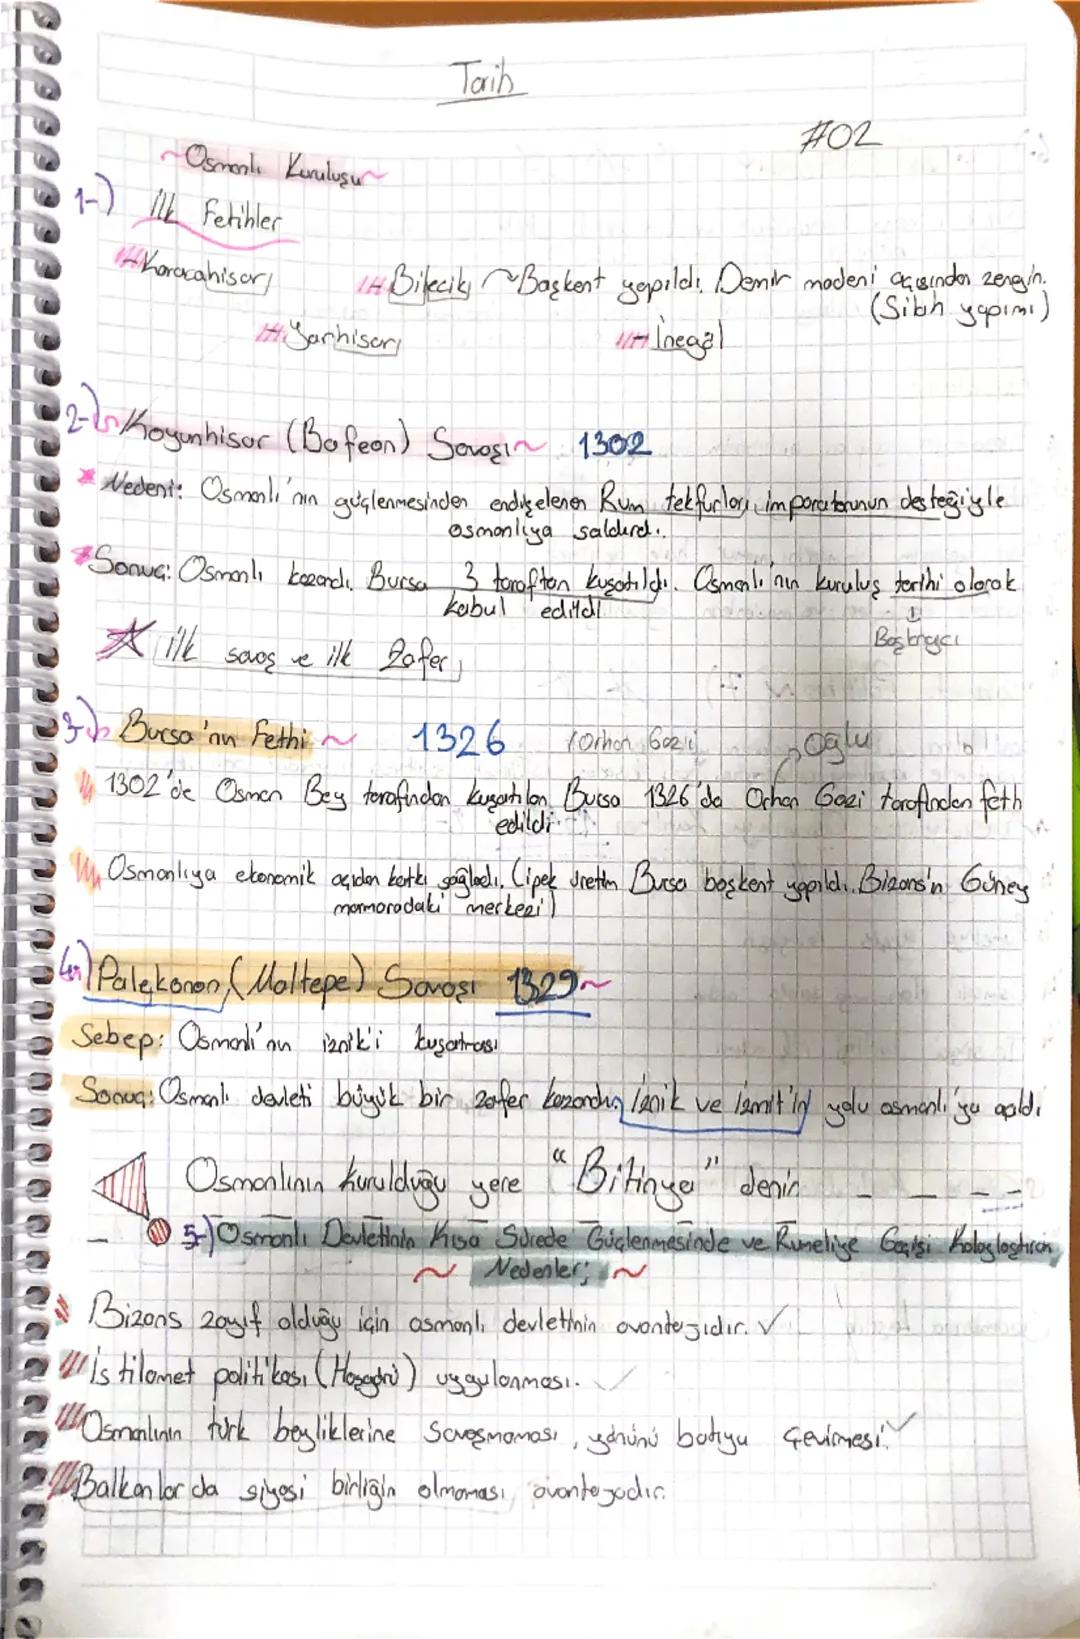 Tarih
#02
~Osmanlı Kuruluşu~
1-) İlk Fetihler
Karacahisar, Bilecik, ~Başkent yapıldı. Demir madeni açısından zengin.
(Silah yapımı)
Yarhisar, İnegöl
2-) Koyunhisar (Bafeon) Savaşı~ 1302
* Nedeni: Osmanlı'nın güçlenmesinden endişelenen Rum tekfurları, imparatorunun desteğiyle
osmanlıya saldırdı.
* Sonuç: Osmanlı kazandı. Bursa 3 taraftan kuşatıldı. Osmanlı'nın kuruluş tarihi olarak
kabul edildi
Başlangıcı
İlk savaş ve ilk Zafer
3-) Bursa'nın Fethi ~ 1326 (Orhan Gazi) Oğlu
1302'de Osman Bey tarafından kuşatılan Bursa 1326'da Orhan Gazi tarafından feth
edildi
Osmanlıya ekonomik açıdan katkı sağladı. (ipek üretim Bursa başkent yapıldı. Bizans'ın Güney
marmaradaki merkezi)
4-) Palekanon, (Maltepe) Savaşı 1329~
Sebep: Osmanlı'nın iznik'i kuşatması
Sonuç: Osmanlı devleti büyük bir zafer kazandı. İznik ve İzmit'in yolu osmanlı'ya açıldı
Osmanlının kurulduğu yere "Bitinya" denir
5-) Osmanlı Devletinin Kısa Sürede Güçlenmesinde ve Rumeliye Geçişi Kolaylaştıran
~ Nedenler; ~
Bizans zayıf olduğu için osmanlı devletinin avantajıdır. ✓
İstilamet politikası (Hoşgörü) uygulanması. ✓
Osmanlının türk beyliklerine savaşmaması, yönünü batıya çevirmesi. ✓
Balkanlarda siyasi birliğin olmaması avantajadır.